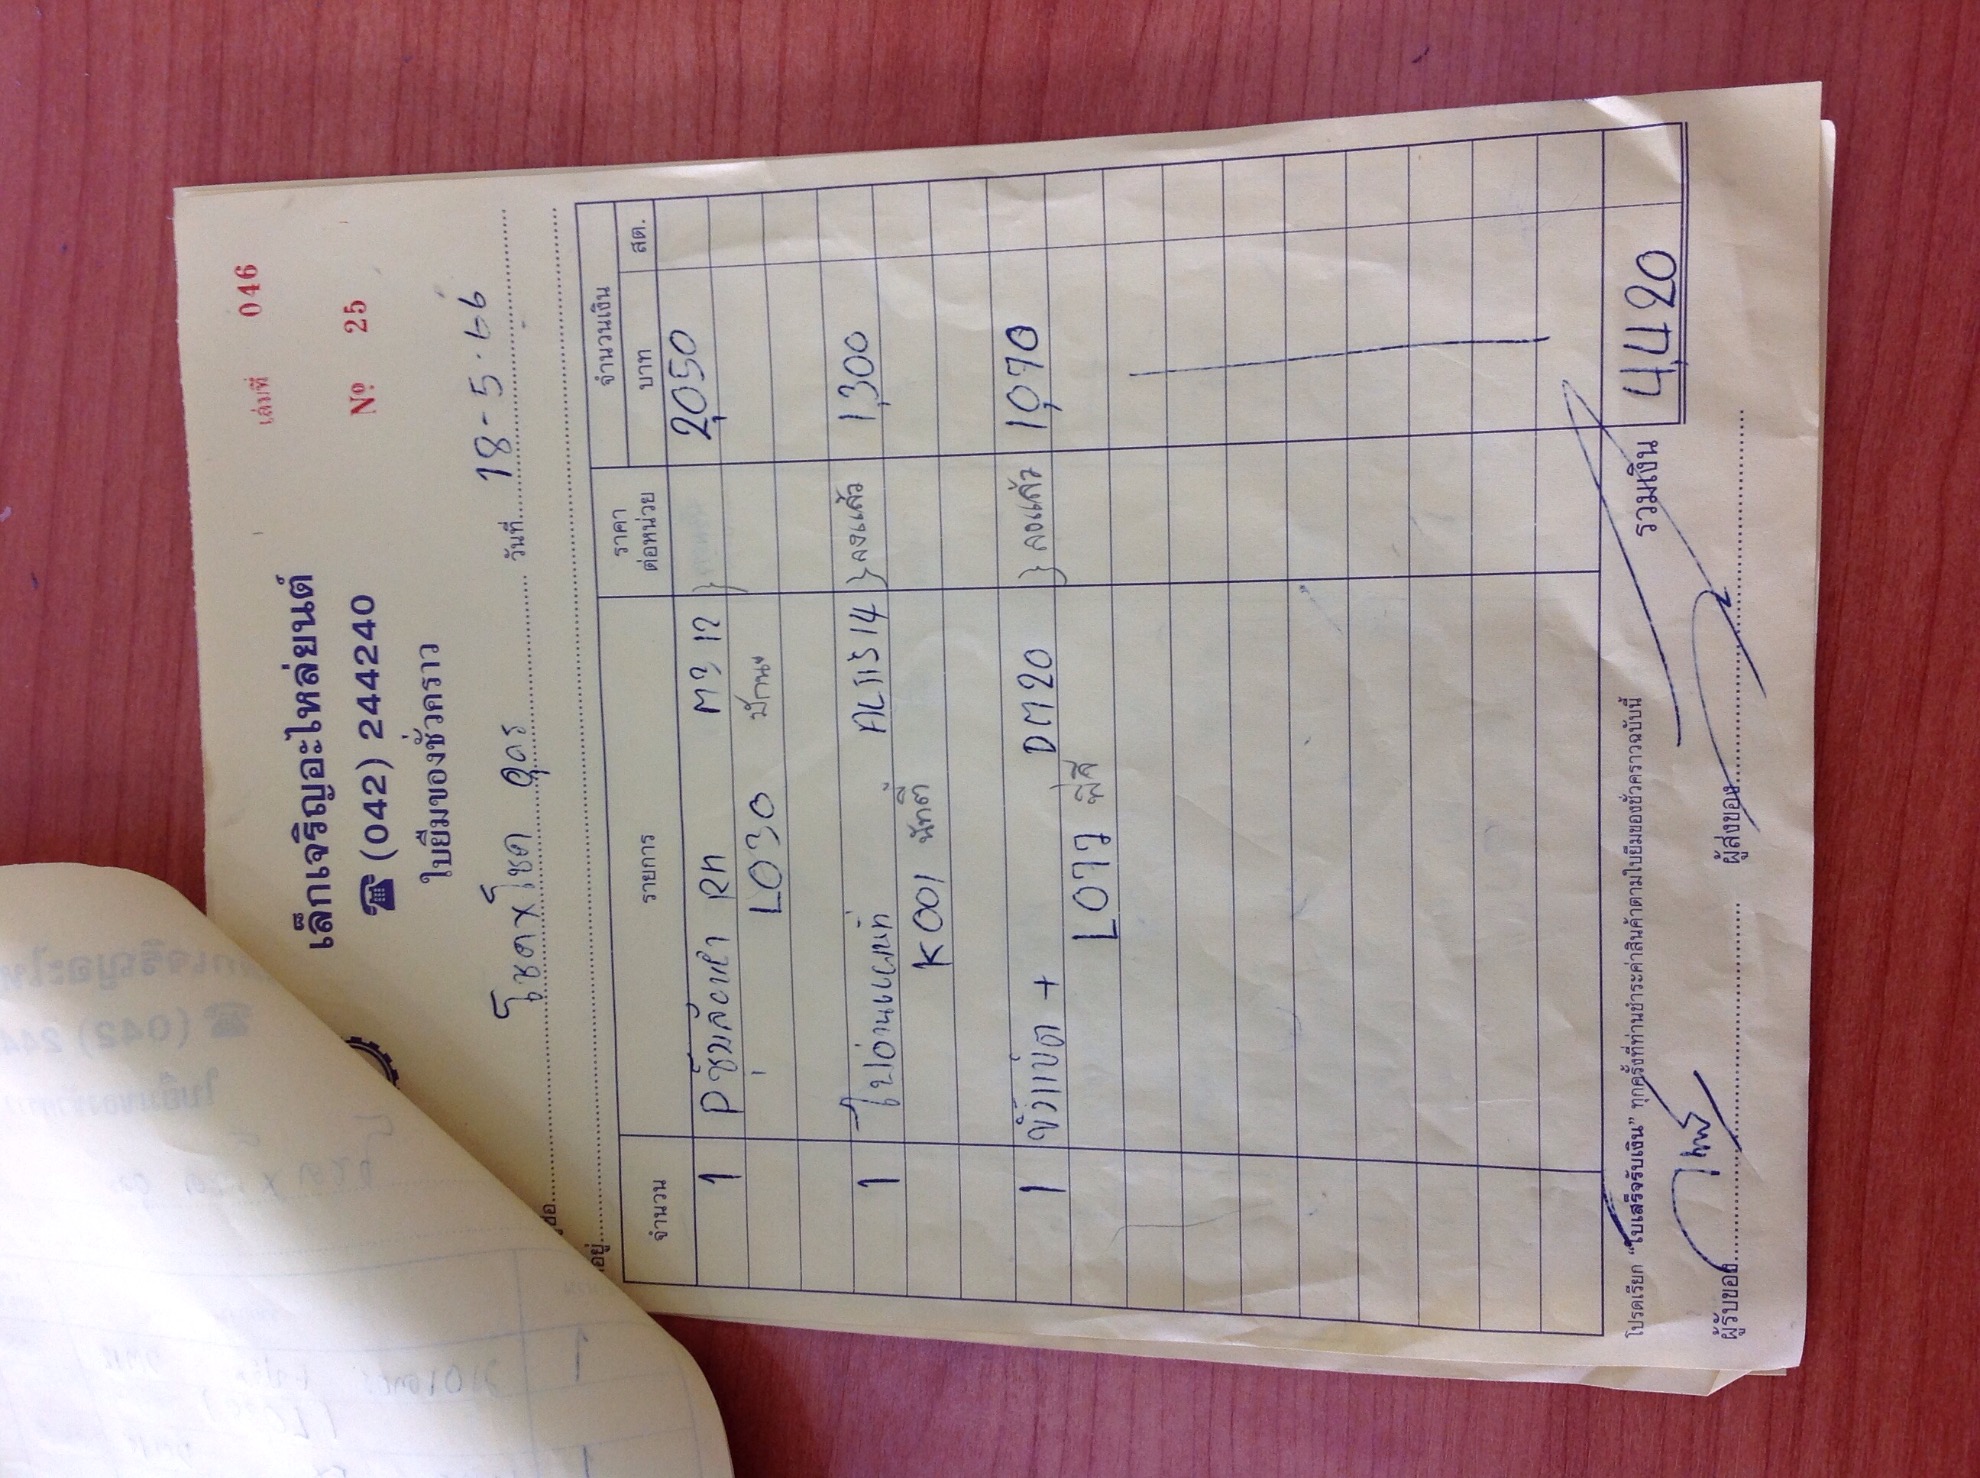 เล่มที่ 046
เล็กเจริญอะไหล่ยนต์
☎ (042) 244240
Nº 25
ใบยืมของชั่วคราว
โชค X โชค อุดร วันที่ 18-5-66
อยู่
จำนวน รายการ ราคาต่อหน่วย จำนวนเงิน
บาท สต.
1 RH 2,050
L030
1 ALTIS 14 } ลงแล้ว 1,300
K001
1 ขั้วแบ็ต + DM20 } ลงแล้ว 1,070
L077
รวมเงิน 4,420
โปรดเรียก “ใบเสร็จรับเงิน” ทุกครั้งที่ท่านชำระค่าสินค้าตามใบยืมของชั่วคราวฉบับนี้
ผู้รับของ ผู้ส่งของ